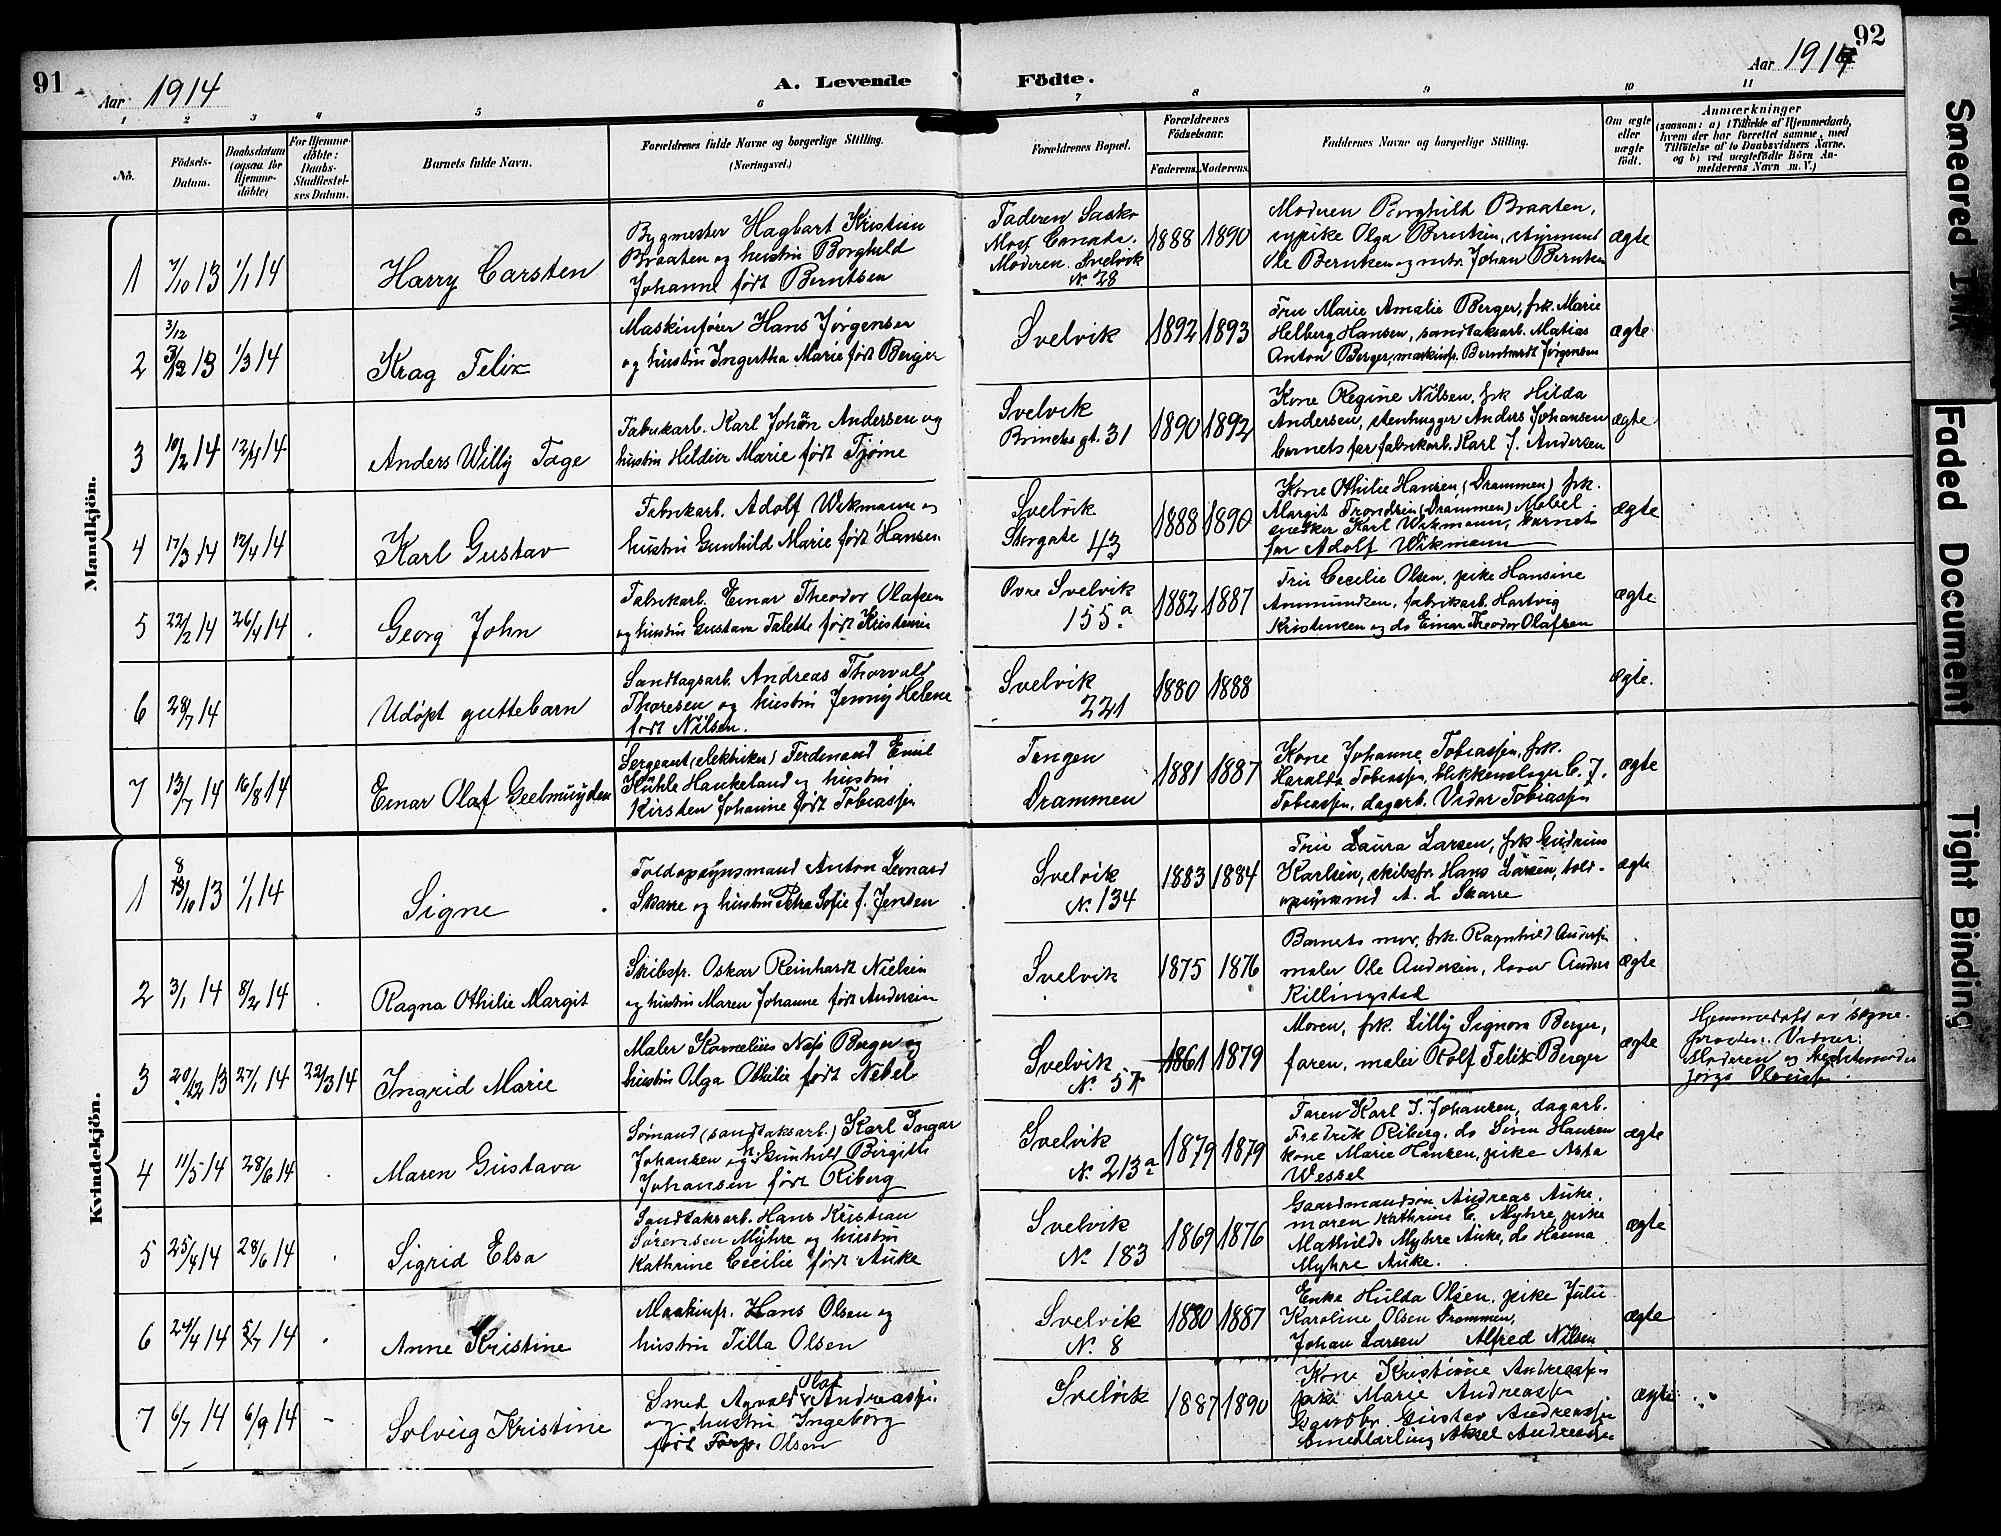 91
Aar 1914
A. Levende
Födte.
Aar 1914
92
1 2 3 4 5 6 7 8 9 10 11
No.
Födsels-
Datum.
Daabsdatum
(ogsaa for
Hjemme-
döbte)
For Hjemme-
döbte:
Daabs-
Stadfæstel-
ses Datum.
Barnets fulde Navn.
Forældrenes fulde Navne og borgerlige Stilling.
(Næringsvei.)
Forældrenes Bopæl.
Forældrenes
Födselsaar.
Faderens. Moderens.
Faddernes Navne og borgerlige Stilling.
Om ægte
eller
uægte
födt.
Anmærkninger
(saasom: a) i Tilfælde af Hjemmedaab,
hvem der har forrettet samme, med
Tilföielse af to Daabsvidners Navne,
og b) ved uægtefödte Börn An-
melderens Navn m. V.)
Mandkjön.
1 7/10 13 1/1 14
Harry Carsten
Bygmester Hagbart Kristian
Braaten og hustru Borghild
Johanne født Berntsen
Faderen Sask.
Canada.
Moderen. Svelvik
No 28
1888 1890
Moderen Borghild Braaten,
sypike Olga Berntsen, styrmand
Ole Berntsen og mtr. Johan Berntsen
ægte
2 3/12 13 1/3 14
Krag Felix
Maskinfører Hans Jørgensen
og hustru Ingertha Marie født Berger
Svelvik
1892 1893
Fru Marie Amalie Berger, frk. Marie
Helberg Hansen, sandtaksarb. Matias
Anton Berger, maskinf. Bernhardt Jørgensen
ægte
3 10/2 14 12/4 14
Anders Willy Tage
Fabrikarb. Karl Johan Andersen og
hustru Marie født Tjøme
Svelvik
gt. 31
1890 1892
Kone Regine Nilsen, frk Hilda
Andersen, stenhugger Anders Johansen
barnets far fabrikarb. Karl J. Andersen
ægte
4 17/3 14 12/4 14
Karl Gustav
Fabrikarb. Adolf Wikmann og
hustru Gunhild Marie født Hansen
Svelvik
Storgate 43
1888 1890
Kone Othilie Hansen (Drammen) frk.
Margit Trondsen (Drammen) Møbel-
snekker Karl Wikmann, barnets
far Adolf Wikmann
ægte
5 22/2 14 26/4 14
Georg John
Fabrikarb. Einar Theodor Olafsen
og hustru Gustava Talette født Kristensen
Øvre Svelvik
155 a
1882 1887
Fru Cecilie Olsen, pike Hansine
Ammundsen, fabrikarb. Hartvig
Kristensen og do Einar Theodor Olafsen
ægte
6 28/7 14
Udøpt guttebarn
Sandtagsarb. Andreas Thorvald
Thoresen og hustru Jenny Helene
født Nilsen.
Svelvik
221
1880 1888
ægte.
7 13/7 14 16/8 14
Einar Olaf Geelmuyden
Sergeant (elektriker) Ferdinand Emil
Kühle Haukeland og hustru
Kirsten Johanne født Tobiassen
Tangen
Drammen
1881 1887
Kone Johanne Tobiassen, frk.
Haralda Tobiassen, blikkenslager C. J.
Tobiassen, dagarb. Vidar Tobiassen
ægte
Kvindekjön.
1 8/10 13 1/1 14
Signe
Toldopsynsmand Anton Leonard
Skarre og hustru Petra Sofie f. Jensen
Svelvik
No 134
1883 1884
Fru Laura Larsen, frk Gudrun
Karlsen, skibsfr. Hans Larsen, told-
opsynsmd A. L Skarre
ægte
2 3/1 14 8/2 14
Ragna Othilie Margit
Skibsfr. Oskar Reinhardt Nielsen
og hustru Maren Johanne født Andersen
Svelvik
1875 1876
Barnets mor, frk. Ragnhild Andersen
maler Ole Andersen, Anders
Killingstad
ægte
3 20/12 13 27/1 14 22/3 14
Ingrid Marie
Maler Kornelius Næss Berger og
hustru Olga Othilie født Nebel
Svelvik
No 57
1861 1879
Moren, frk. Lilly Signora Berger,
faren, maler Rolf Felix Berger
ægte
Hjemmedøbt av sogne-
presten. Vidner:
Moderen og
Jørgs
4 11/5 14 28/6 14
Maren Gustava
Sømand (sandtaksarb.) Karl Ingar
Johansen og Gunhild Birgitte
Johansen født Riberg
Svelvik
No 213 a
1879 1879
Faren Karl I. Johansen, dagarb.
Fredrik Riberg, do Søren Hansen
kone Marie Hansen, pike Asta
Wessel
ægte
5 25/4 14 28/6 14
Sigrid Elsa
Sandtaksarb. Hans Kristian
Sørensen Myhre og hustru
Kathrine Cecilie født Auke
Svelvik
No 183
1869 1876
Gaardmandsøn Andreas Auke,
moren Kathrine C. Myhre, pike
Mathilde Myhre Auke, do Hanna
Myhre Auke.
ægte
6 24/4 14 5/7 14
Anne Kristine
Maskinfr. Hans Olsen og
hustru Tilla Olsen
Svelvik
No 8
1880 1887
Enke Hulda Olsen, pike Julie
Karoline Olsen Drammen,
Johan Larsen Alfred Nilsen
ægte
7 6/7 14 6/9 14 -
Solveig Kristine
Smed Olaf Andreassen
og hustru Ingeborg
født Olsen
Svelvik
1887 1890
Kone Kristiane Andreassen
pike Marie Andreassen
Gustav Andreassen
Smedlærling Aksel Andreassen
ægte
Smeared Ink
Faded Document
Tight Binding